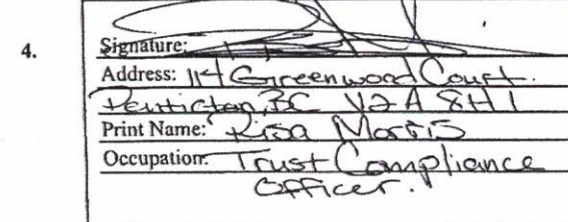 4.
Signature:
Address: 114 Greenwood Court.
Penticton, BC V2A 8H1
Print Name: Risa Morris
Occupation: Trust Compliance
Officer.